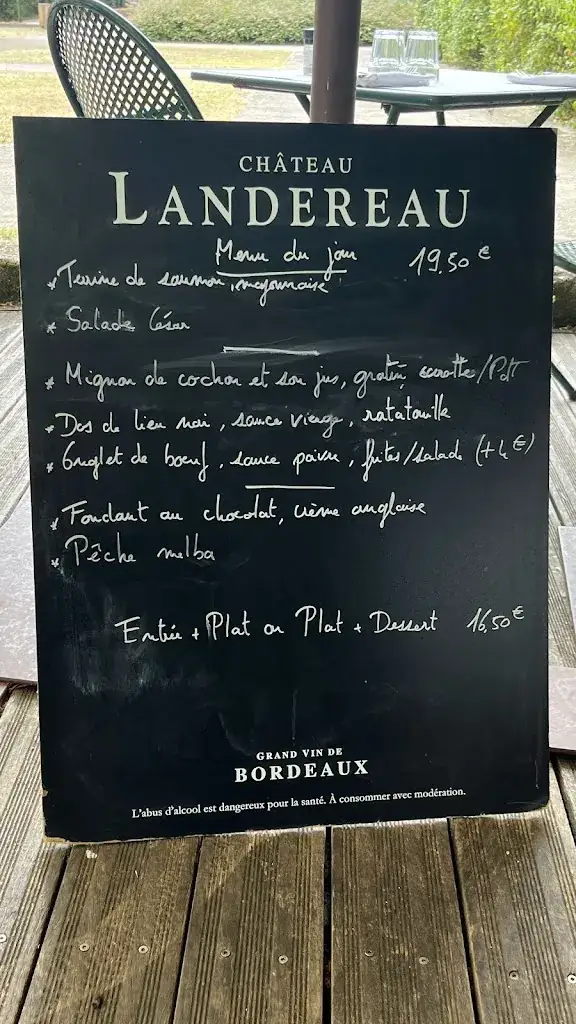 CHÂTEAU
LANDEREAU
Menu du jour 19,50 €
* Terrine de saumon, mayonnaise
* Salade César
* Mignon de cochon et son jus, gratin carotte/Pdt
* Dos de lieu noir, sauce vierge, ratatouille
* Onglet de boeuf, sauce poivre, frites/salade (+4€)
* Fondant au chocolat, crème anglaise
* Pêche melba
Entrée + Plat ou Plat + Dessert 16,50 €
GRAND VIN DE
BORDEAUX
L'abus d'alcool est dangereux pour la santé. À consommer avec modération.